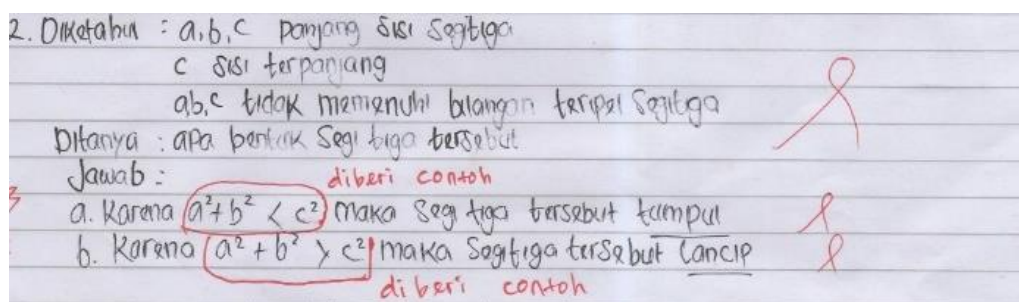 2. Diketahui : a,b,c panjang sisi segitiga
c sisi terpanjang
a,b,c tidak memenuhi bilangan teripel segitiga
Ditanya : apa bentuk segi tiga tersebut
Jawab :
diberi contoh
a. Karena a² + b² < c² maka segi tiga tersebut tumpul
b. Karena a² + b² > c² maka segitiga tersebut Lancip
diberi contoh